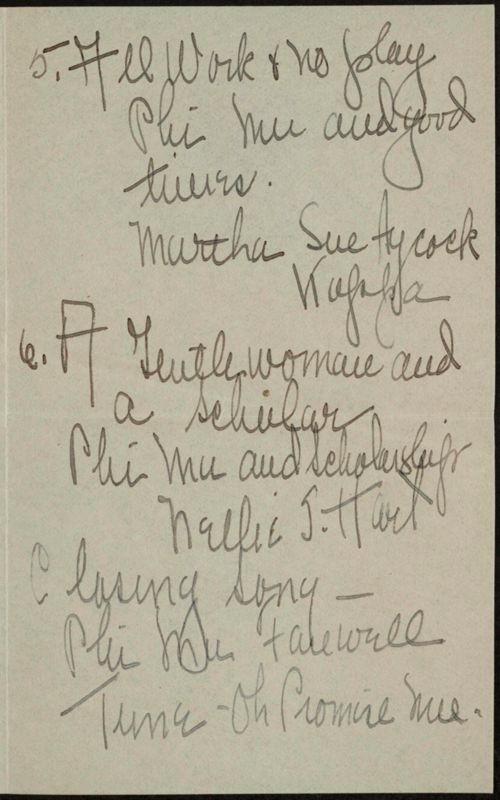 5. All Work & no play
Phi Mu and good
times.
Martha Sue Aycock
Kappa
6. A Gentlewoman and
a scholar
Phi Mu and scholarship
Nellie S. Hart
Closing song —
Phi Mu Farewell
Tune - Oh Promise Me.